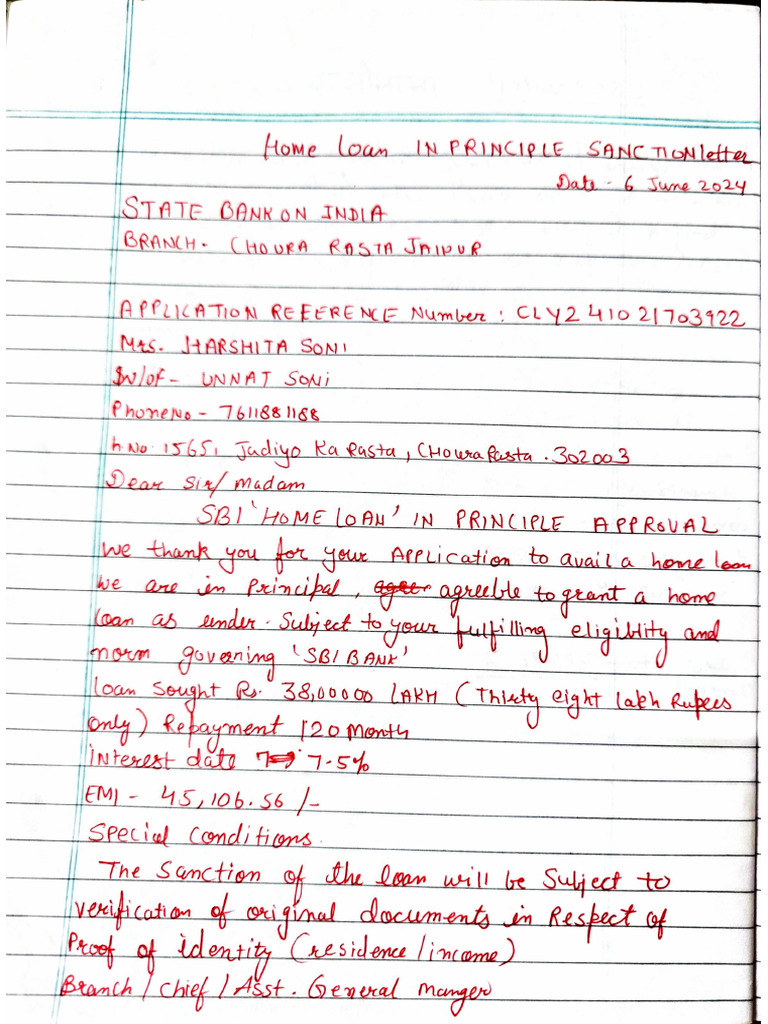 Home Loan IN PRINCIPLE SANCTION letter
Date - 6 June 2024
STATE BANK ON INDIA
BRANCH. CHOURA RASTA JAIPUR
APPLICATION REFERENCE Number : CLY241021703922
Mrs. HARSHITA SONI
W/of - UNNAT SONI
Phone No - 7611881188
h.No. 1565, Jadiyo Ka Rasta, CHoura Rasta . 302003
Dear Sir/ madam
SBI 'HOME LOAN' IN PRINCIPLE APPROVAL
we thank you for your APPLICATION to avail a home loan
we are in Principal, agreeble to grant a home
loan as under. Subject to your fulfilling eligiblity and
norm governing 'SBI BANK'
loan sought Rs. 38,00000 LAKH (Thirty eight lakh Rupees
only) Repayment 120 Month
interest date 7.5%
EMI - 45,106.56 /-
Special Conditions.
The Sanction of the loan will be Subject to
verification of original documents in Respect of
Proof of identity (residence/income)
Branch / chief / Asst. General manger